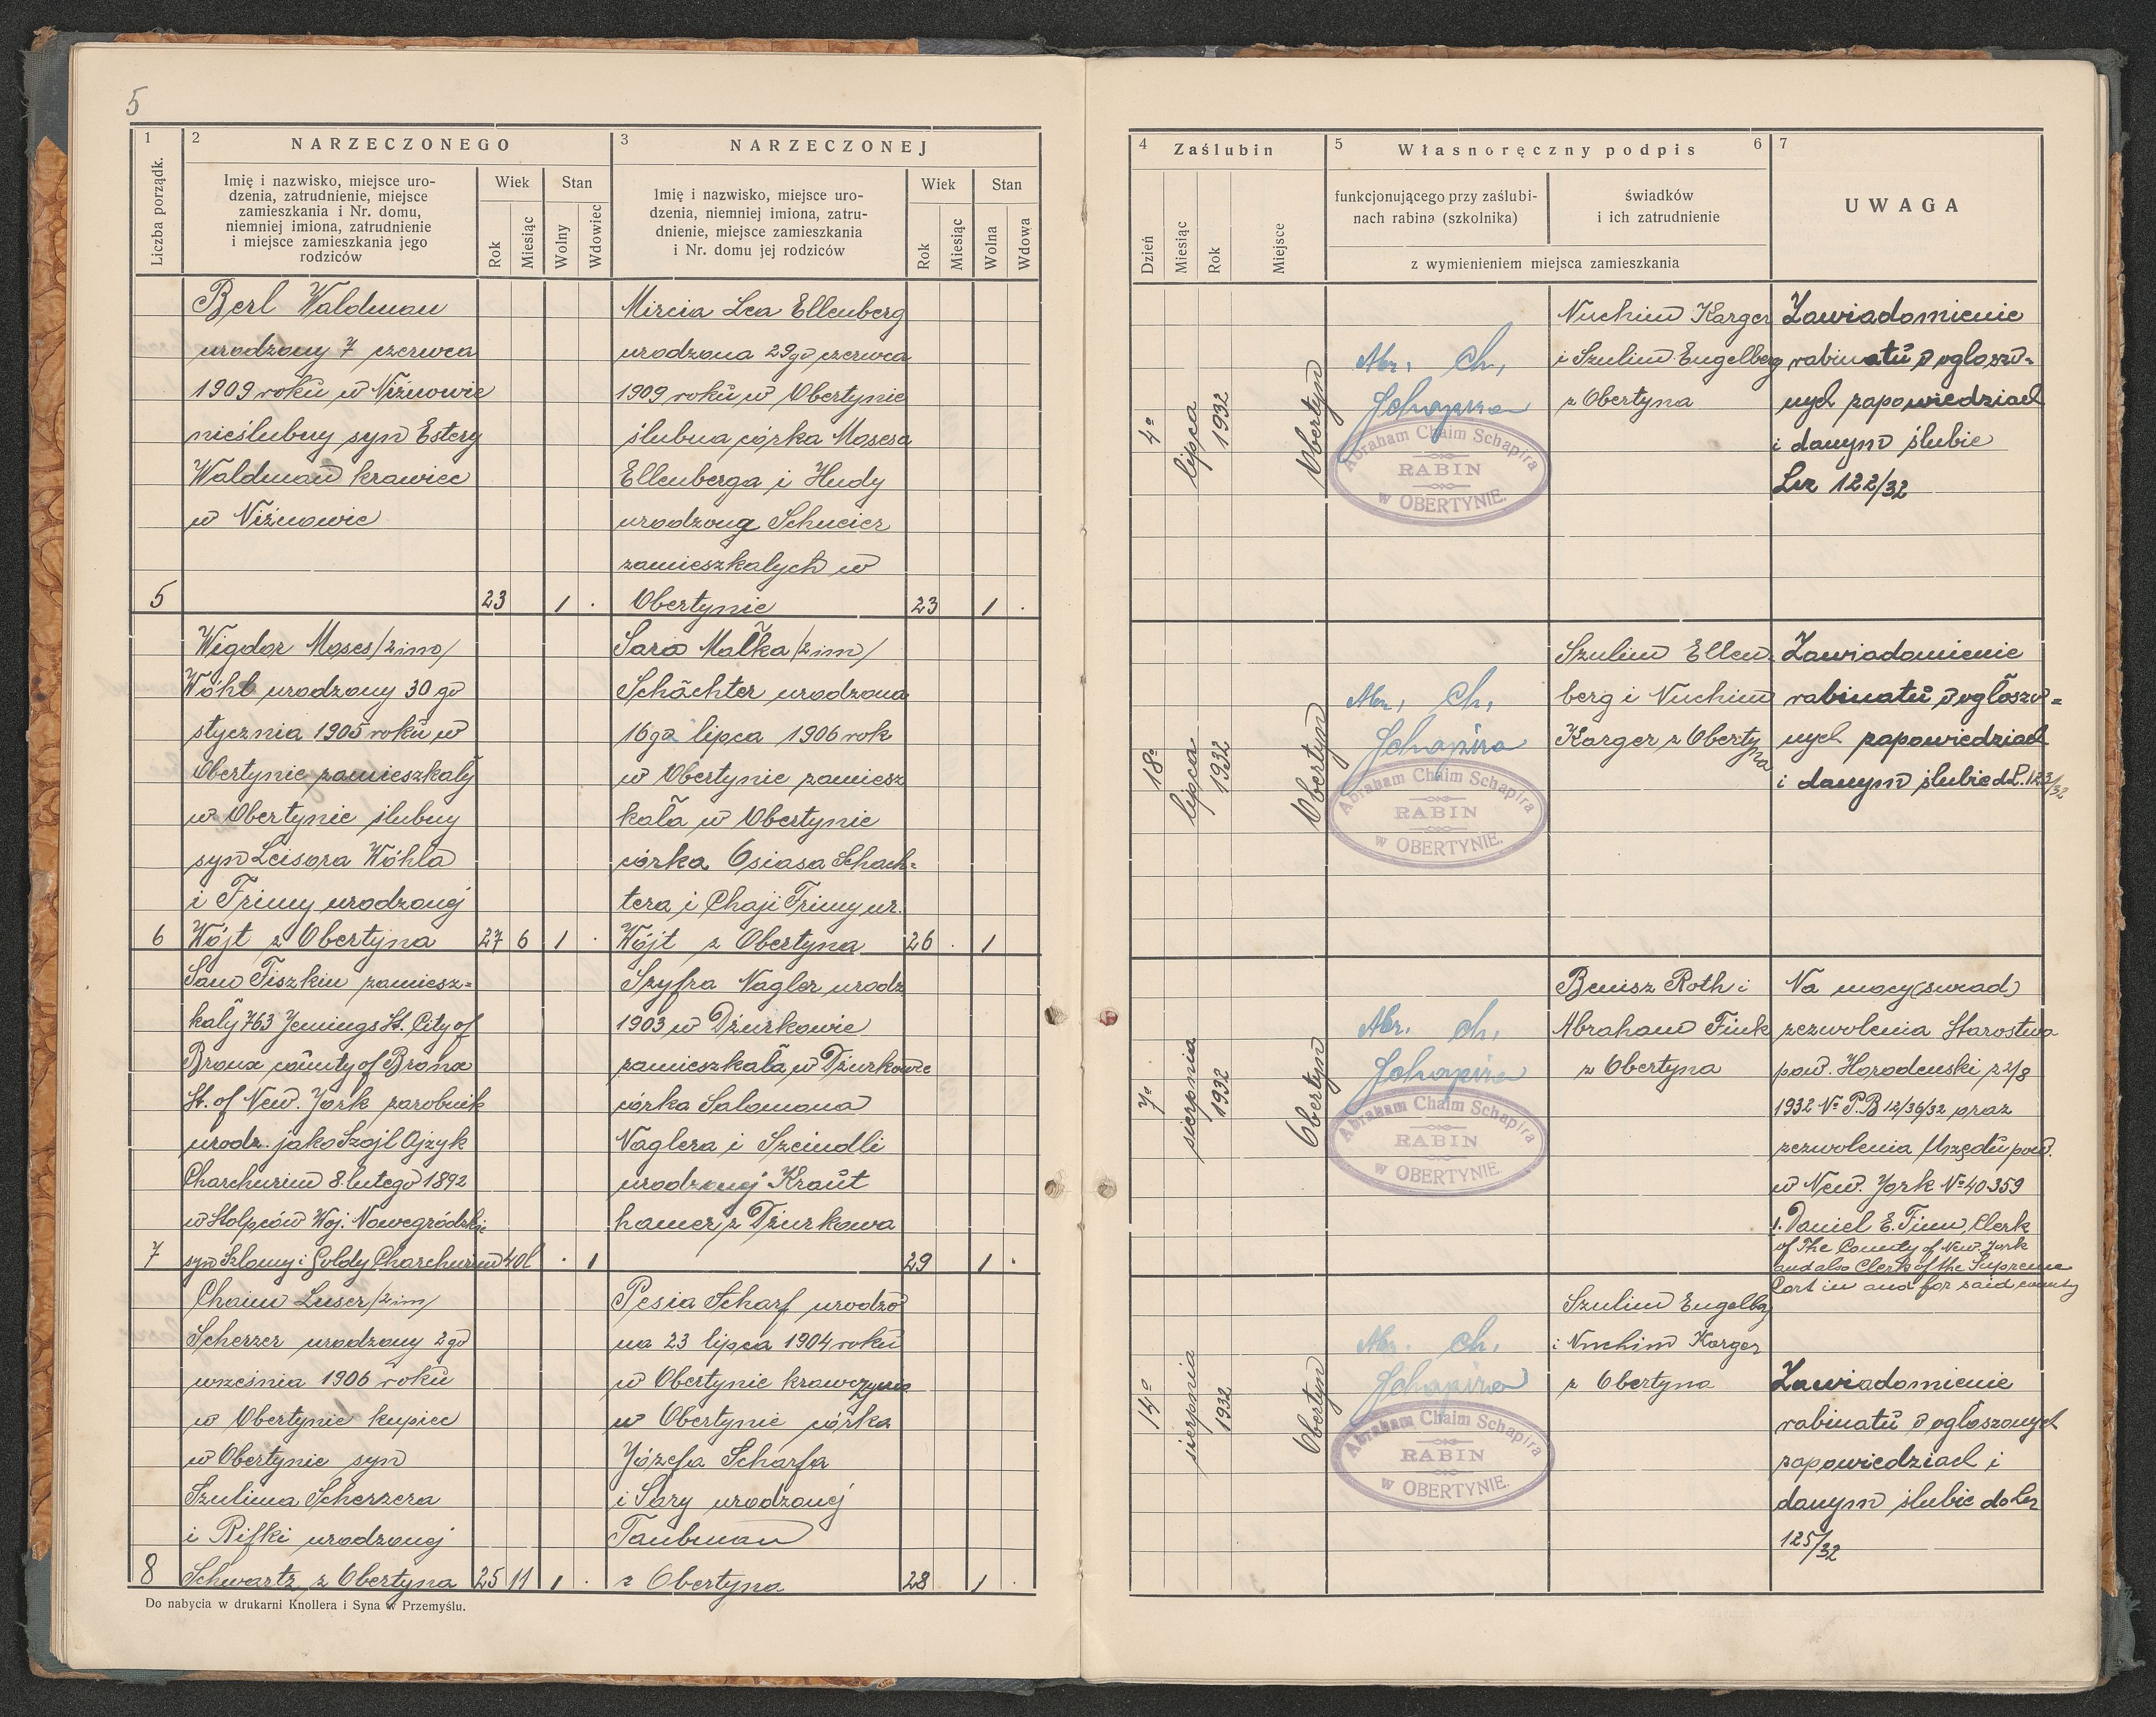 5
1
2 NARZECZONEGO
3 NARZECZONEJ
Liczba porządk.
Imię i nazwisko, miejsce uro-
dzenia, zatrudnienie, miejsce
zamieszkania i Nr. domu,
niemniej imiona, zatrudnienie
i miejsce zamieszkania jego
rodziców
Wiek
Stan
Rok
Miesiąc
Wolny
Wdowiec
Imię i nazwisko, miejsce uro-
dzenia, niemniej imiona, zatru-
dnienie, miejsce zamieszkania
i Nr. domu jej rodziców
Wiek
Stan
Rok
Miesiąc
Wolna
Wdowa
Berl Waldman
urodzony 7 czerwca
1909 roku w Niżniowie
nieślubny syn Estery
Waldman krawiec
w Niżniowie
5
23
1 .
Mircia Lea Ellenberg
urodzona 29go czerwca
1909 roku w Obertynie
ślubna córka Mosesa
Ellenberga i Hudy
urodzonej Schneier
zamieszkałych w
Obertynie
23
1 .
Wigdor Moses /2 im/
Wöhl urodzony 30 go
stycznia 1905 roku w
Obertynie zamieszkały
w Obertynie ślubny
syn Leisora Wöhla
i Frimy urodzonej
6 Wójt z Obertyna 27 6 1 .
Sara Malka /2 im/
Schächter urodzona
16go lipca 1906 rok
w Obertynie zamiesz
kała w Obertynie
córka Osiasa Schach-
tera i Chaji Frimy ur.
Wójt z Obertyna 26 . 1
Sam Fiszkin zamiesz-
kały 763 Jennings St. City of
Bronx county of Bronx
St. of New. York zarobnik
urodz. jako Szojl Ajzyk
Charchurim 8. lutego 1892
w Stolpców Woj. Nowogródzkie
7 syn Szlomy i Goldy Charchurim 40 l . 1
Szyfra Nagler urodz
1903 w Dżurkowie
zamieszkała w Dżurkowie
córka Salomona
Naglera i Szeindli
urodzonej Kraut
hamer z Dżurkowa
29 1 .
Chaim Luser /2 im/
Scherzer urodzony 2go
września 1906 roku
w Obertynie kupiec
w Obertynie syn
Szulima Scherzera
i Rifki urodzonej
8 Schwartz z Obertyna 25 11 1 .
Pesia Scharf urodzo
na 23 lipca 1904 roku
w Obertynie krawczynia
w Obertynie córka
Józefa Scharfa
i Sary urodzonej
Taubman
z Obertyna 28 1 .
Do nabycia w drukarni Knollera i Syna w Przemyślu.
4 Zaślubin
5 Własnoręczny podpis 6
7
Dzień
Miesiąc
Rok
Miejsce
funkcjonującego przy zaślubi-
nach rabina (szkolnika)
świadków
i ich zatrudnienie
z wymienieniem miejsca zamieszkania
UWAGA
4º
lipca
1932
Obertyn
Abr. Ch.
Schapira
Abraham Chaim Schapira
RABIN
w OBERTYNIE.
Nuchim Karger
i Szulim Engelberg
z Obertyna
Zawiadomienie
rabinatu o ogłoszo-
nych zapowiedziach
i danym ślubie
Lrz 122/32
18º
lipca
1932
Obertyn
Abr. Ch.
Schapira
Abraham Chaim Schapira
RABIN
w OBERTYNIE.
Szulim Ellen-
berg i Nuchim
Karger z Oberty
na
Zawiadomienie
rabinatu o ogłoszo-
nych zapowiedziach
i danym ślubie d L. 123/32
7º
sierpnia
1932
Obertyn
Abr. Ch.
Schapira
Abraham Chaim Schapira
RABIN
w OBERTYNIE.
Benisz Roth i
Abraham Fink
z Obertyna
Na mocy
zezwolenia Starostwa
pow. Horodenski z 2/8
1932 Nº P.B 12/36/32 oraz
zezwolenia Urzędu pow.
w New. York Nº 40359
1. Daniel E. Finn, Clerk
of The County of New. York
and also Clerk of the Supreme
Cort in and for said county
14º
sierpnia
1932
Obertyn
Abr. Ch.
Schapira
Abraham Chaim Schapira
RABIN
w OBERTYNIE.
Szulim Engelbg
i Nuchim Karger
z Obertyna
Zawiadomienie
rabinatu o ogłoszonych
zapowiedziach i
danym ślubie do Lrz
125/32